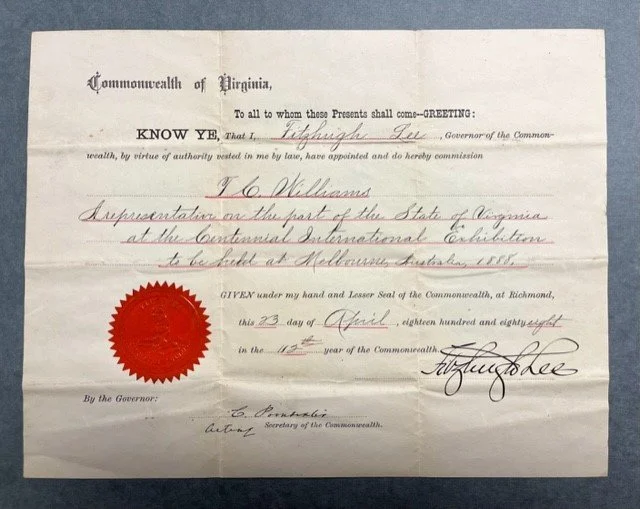 Commonwealth of Virginia,
To all to whom these Presents shall come—GREETING:
KNOW YE, That I, Fitzhugh Lee, Governor of the Common-
wealth, by virtue of authority vested in me by law, have appointed and do hereby commission
T. C. Williams
A representative on the part of the State of Virginia
at the Centennial International Exhibition
to be held at Melbourne, Australia, 1888,
GIVEN under my hand and Lesser Seal of the Commonwealth, at Richmond,
this 23 day of April, eighteen hundred and eighty eight
in the 112th year of the Commonwealth.
Fitzhugh Lee
By the Governor:
C.
Acting Secretary of the Commonwealth.